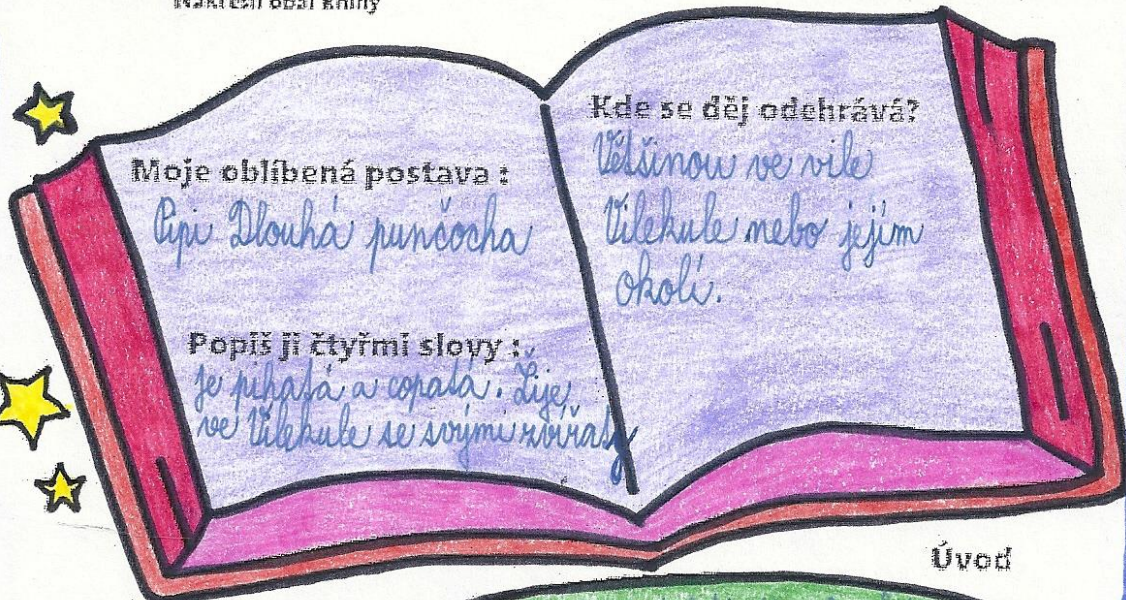 Nakresli obal knihy
Moje oblíbená postava :
Pipi Dlouhá punčocha
Popiš ji čtyřmi slovy :
Je pihatá a copatá. Žije
ve Vilekule se svými zvířaty
Kde se děj odehrává?
Většinou ve vile
Vilekule nebo jejím
okolí.
Úvod